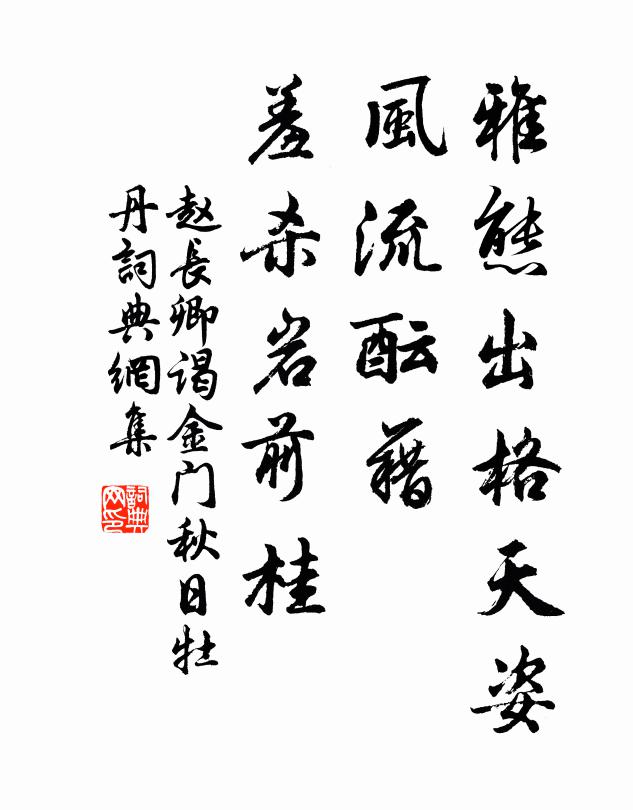 雅態出格天姿
風流酝藉
羞杀岩前桂
赵長卿谒金门秋日牡
丹詞典網集
詞典
网印